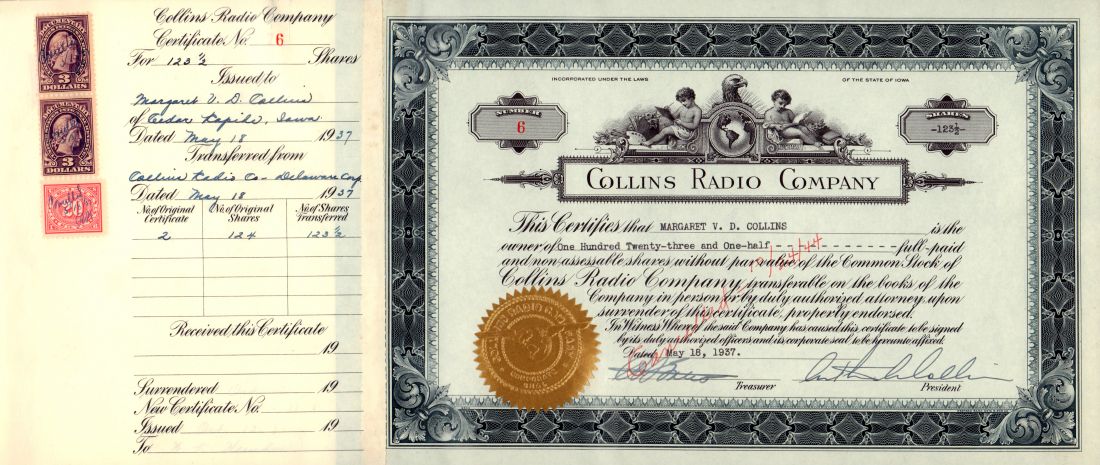 Collins Radio Company
Certificate, No. 6
For 123 1/2 Shares
Issued to
Margaret V. D. Collins
of Cedar Rapids, Iowa
Dated May 18 1937
Transferred from
Collins Radio Co - Delaware Corp
Dated May 18 1937
No. of Original Certificate No. of Original Shares No. of Shares Transferred
2 124 123 1/2
Received this Certificate
19
Surrendered 19
New Certificate, No.
Issued 19
To
DOCUMENTARY
3
DOLLARS
DOCUMENTARY
3
DOLLARS
20
INCORPORATED UNDER THE LAWS OF THE STATE OF IOWA
NUMBER
6
SHARES
-123½-
COLLINS RADIO COMPANY
This Certifies that MARGARET V. D. COLLINS is the
owner of One Hundred Twenty-three and One-half - - - - - - - - - - full-paid
and non-assessable shares without par value of the Common Stock of
Collins Radio Company, transferable on the books of the
Company in person or by duly authorized attorney upon
surrender of this certificate, properly endorsed.
In Witness Whereof the said Company has caused this certificate to be signed
by its duly authorized officers and its corporate seal to be hereunto affixed.
Dated May 18, 1937.
Treasurer
Arthur A. Collins
President
Cancelled 10/24/44
COLLINS RADIO COMPANY
CORPORATE
SEAL